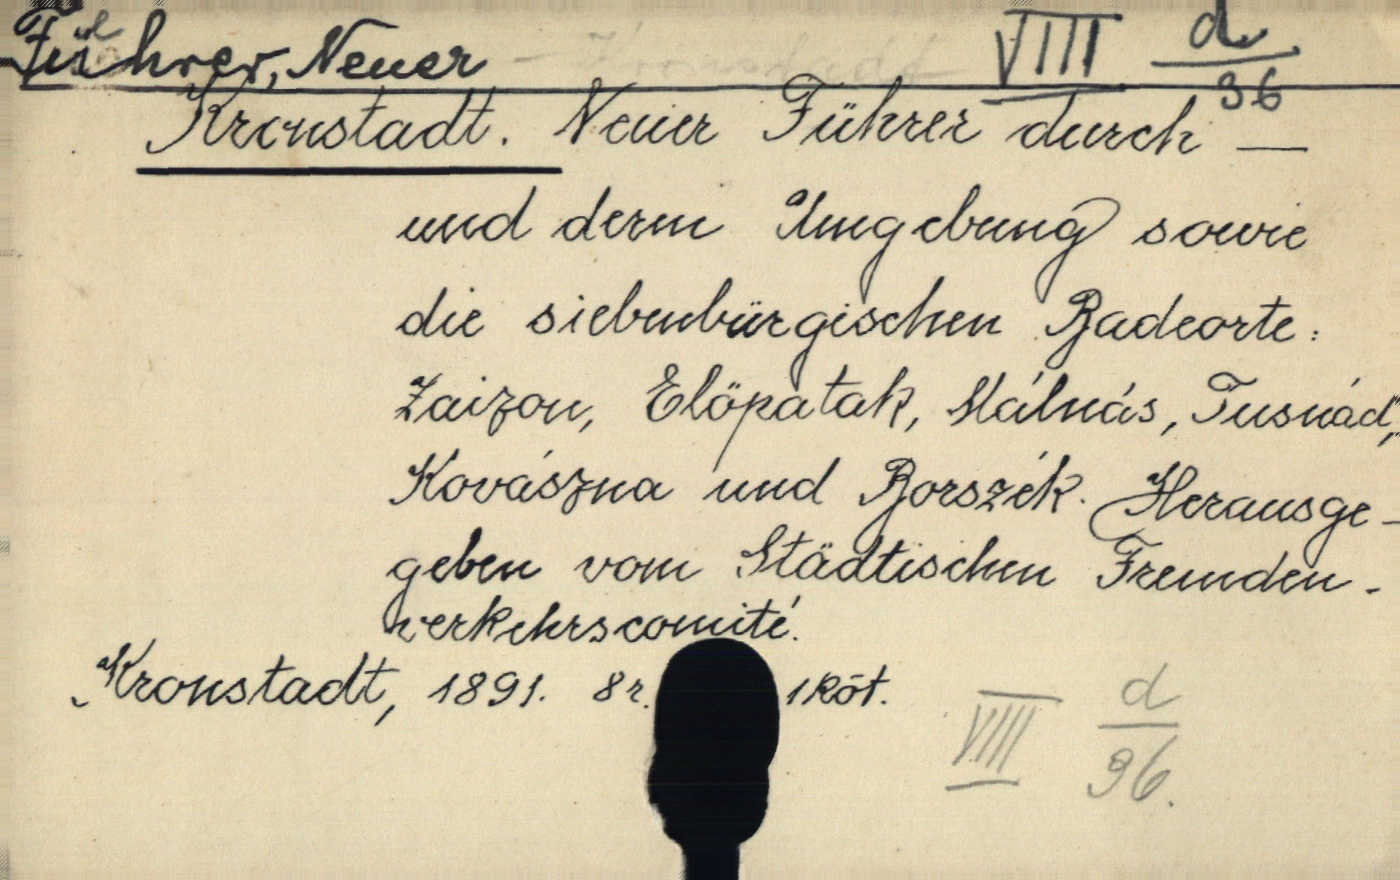 Führer, Neuer - Kronstadt VIIII d/96
Kronstadt. Neuer Führer durch —
und deren Umgebung sowie
die siebenbürgischen Badeorte:
Zaizon, Előpatak, Málnás, Tusnád,
Kovászna und Borszék. Herausge-
geben vom Städtischen Fremden-
verkehrscomité.
Kronstadt, 1891. 8r. 1 köt.
VIIII d/96.